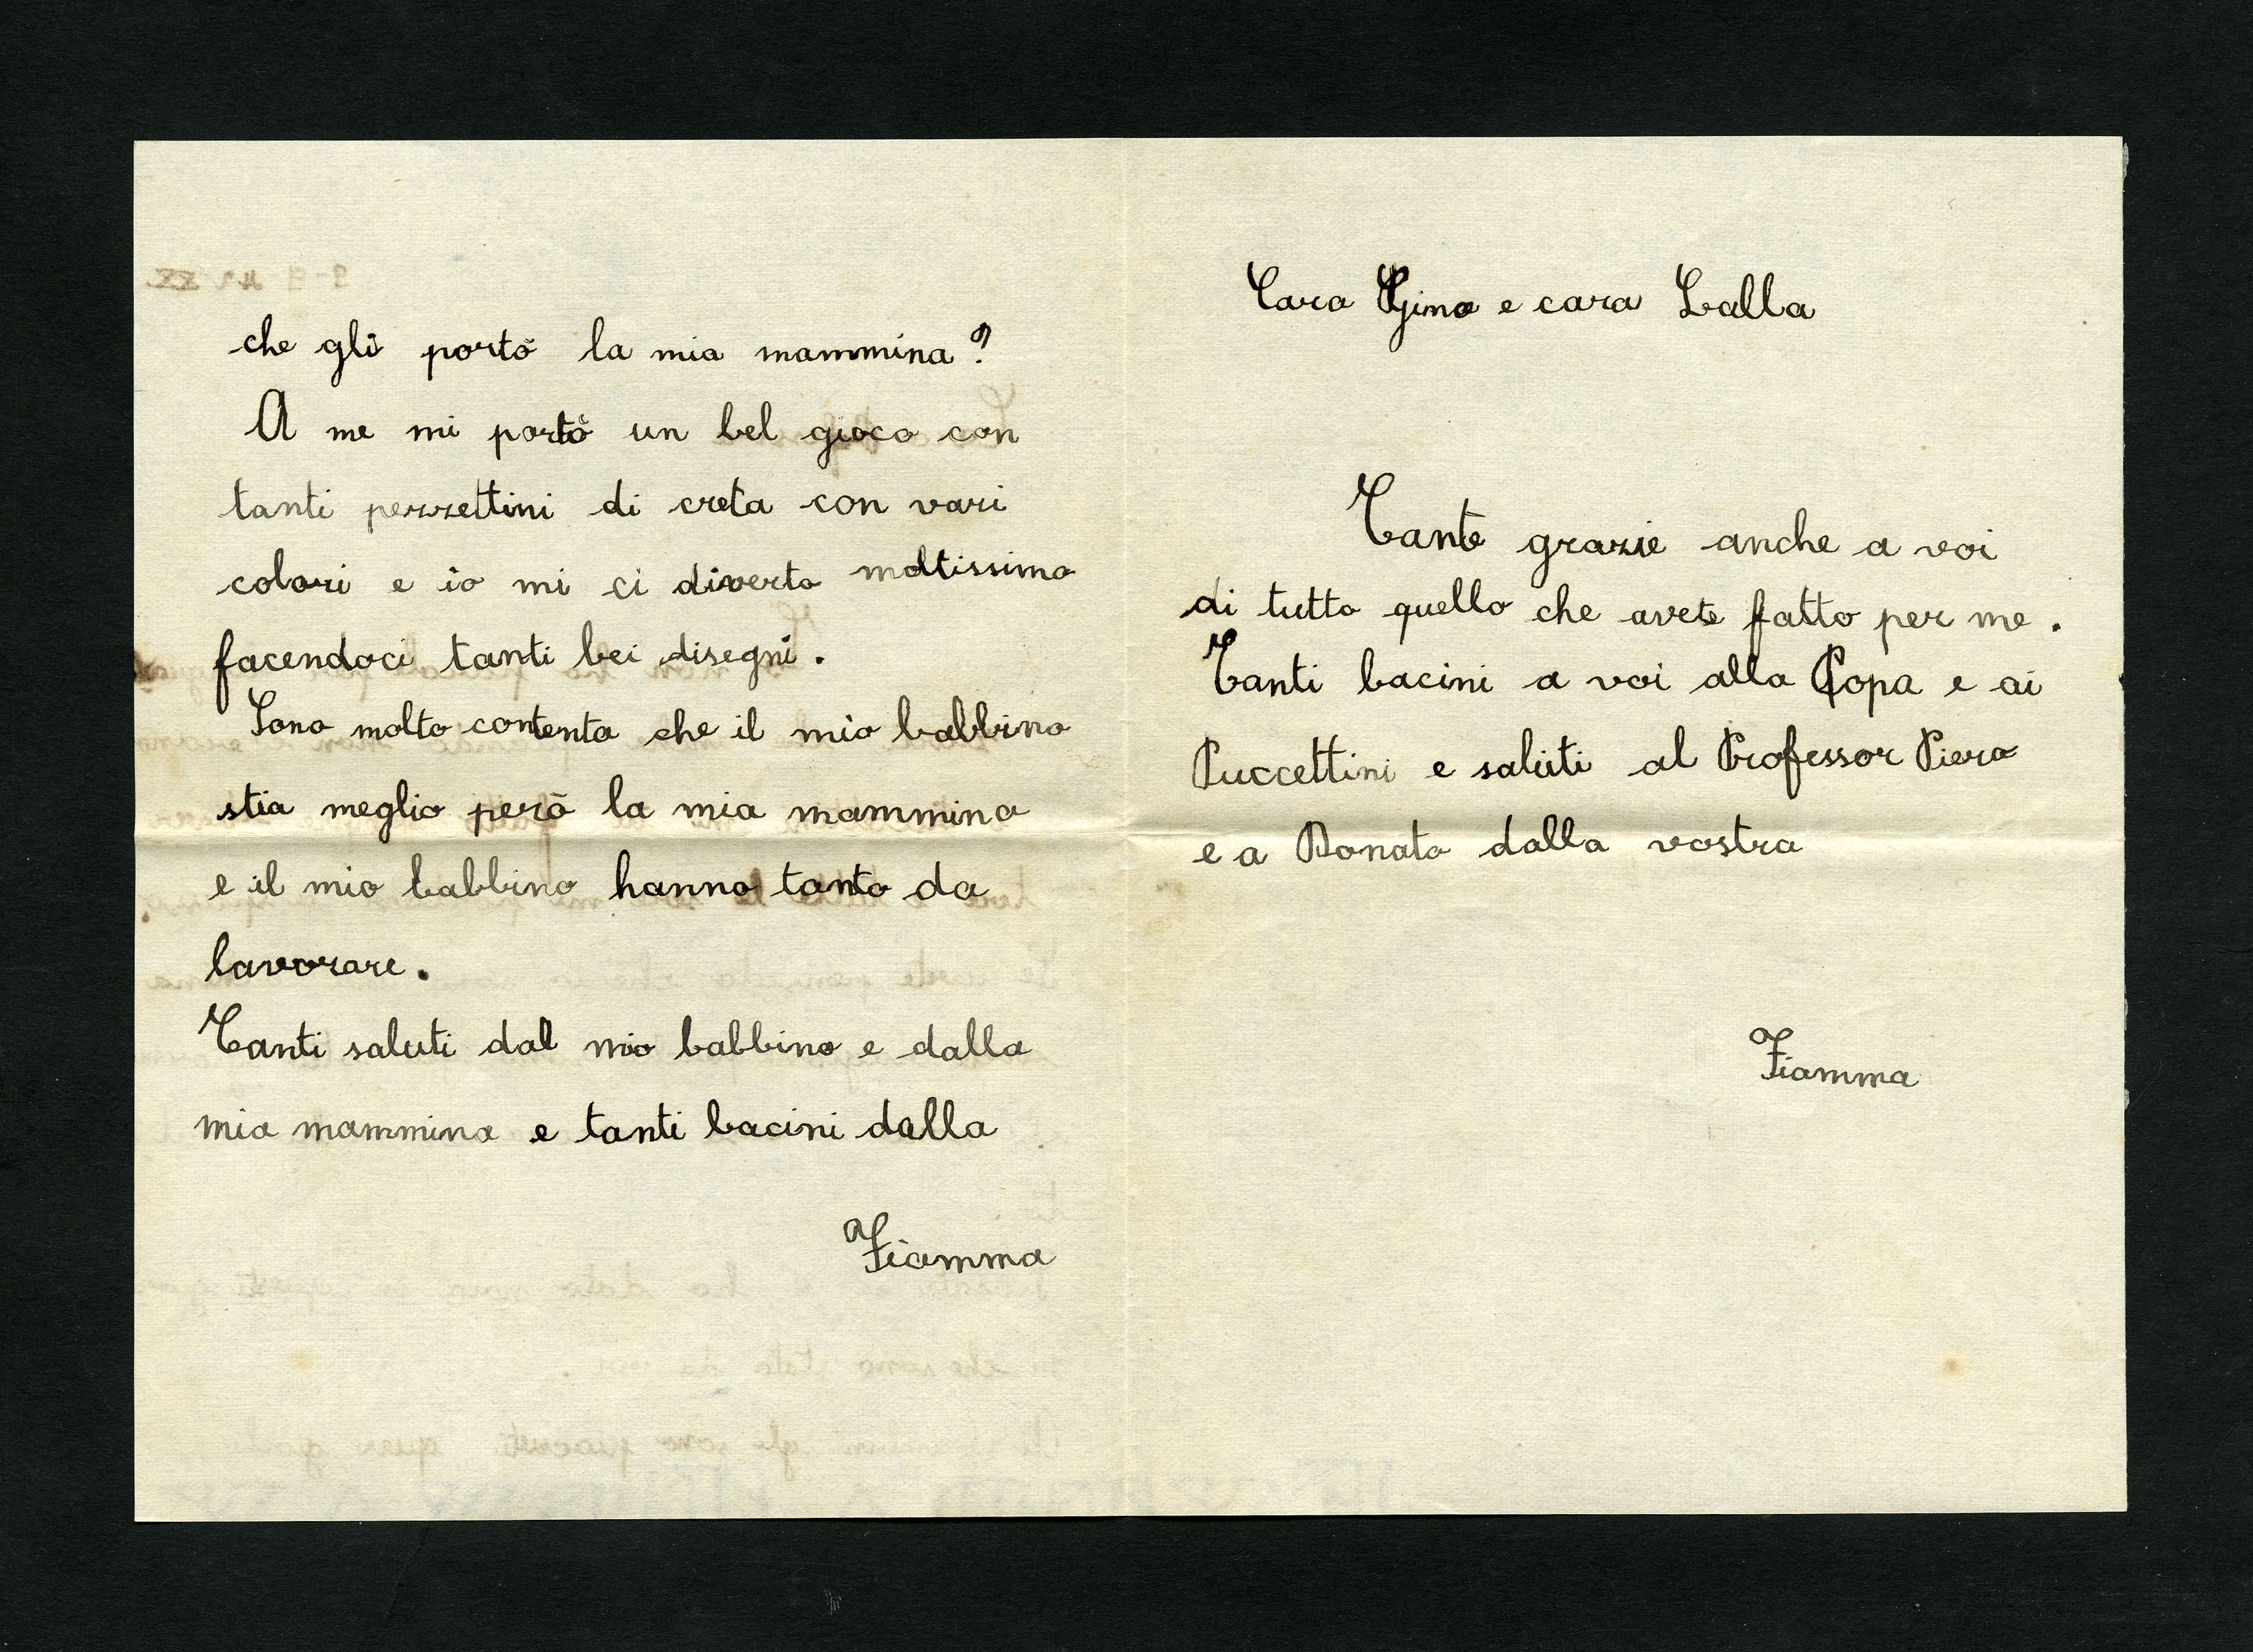 che gli portò la mia mammina?
A me mi portò un bel gioco con
tanti pezzettini di creta con vari
colori e io mi ci diverto moltissimo
facendoci tanti bei disegni.
Sono molto contenta che il mio babbino
stia meglio però la mia mammina
e il mio babbino hanno tanto da
lavorare.
Tanti saluti dal mio babbino e dalla
mia mammina e tanti bacini dalla
Fiamma
Caro Gino e cara Lalla
Tante grazie anche a voi
di tutto quello che avete fatto per me.
Tanti bacini a voi alla Popa e ai
Puccettini e saluti al Professor Piero
e a Donato dalla vostra
Fiamma